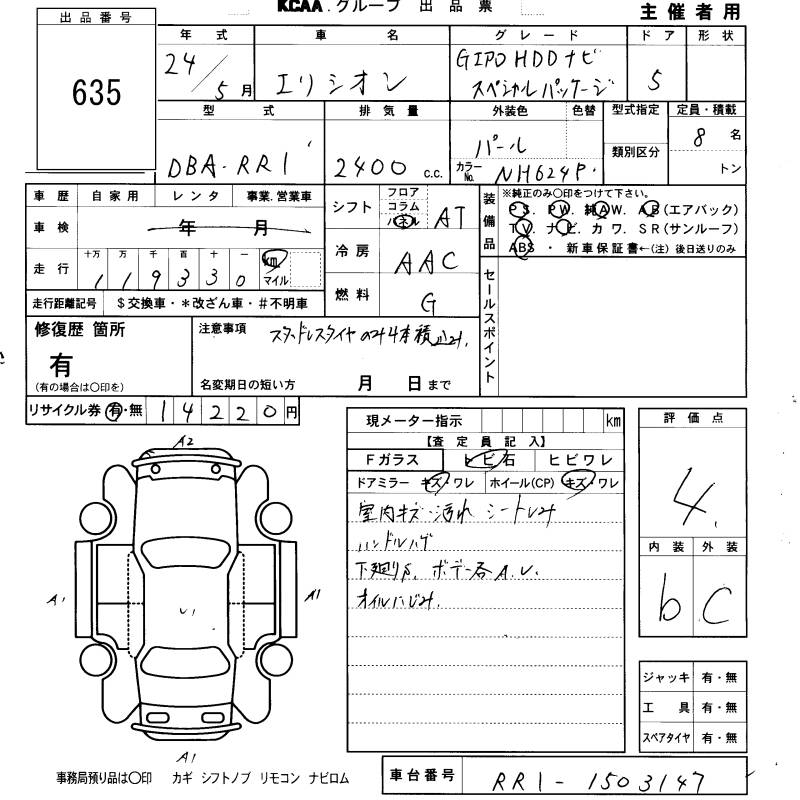 KCAA.グループ 出品票 主催者用
出品番号
635
年式 車名 グレード ドア 形状
24/5月 エリシオン GエアロHDDナビ スペシャルパッケージ 5
型式 排気量 外装色 色替 型式指定 定員・積載
DBA-RR1 2400 c.c. パール 8名
カラーNo. NH624P. 類別区分 トン
車歴 自家用 レンタ 事業.営業車
車検 年 月
走行 十万 万 千 百 十 一
119330 km マイル
走行距離記号 $交換車・*改ざん車・#不明車
シフト フロア コラム パネル AT
冷房 AAC
燃料 G
装備品 ※純正のみ〇印をつけて下さい。
PS. PW. 純AW. AB(エアバック)
TV. ナビ. カワ. SR(サンルーフ)
ABS・新車保証書←(注)後日送りのみ
セールスポイント
修復歴 箇所
有
(有の場合は〇印を)
注意事項 スタッドレスタイヤのみ4本積込み.
名変期日の短い方 月 日まで
リサイクル券 有・無 14220円
現メーター指示 km
【査定員記入】
Fガラス トビ石 ヒビワレ
ドアミラー キズ・ワレ ホイール(CP) キズ・ワレ
室内キズ・汚れ シートしみ
ハンドルハゲ
下廻りS. ボデー各A.U.
オイルにじみ.
評価点
4.
内装 外装
b C
ジャッキ 有・無
工具 有・無
スペアタイヤ 有・無
A2
A1 U1 A1
A1
事務局預り品は〇印 カギ シフトノブ リモコン ナビロム
車台番号 RR1-1503147